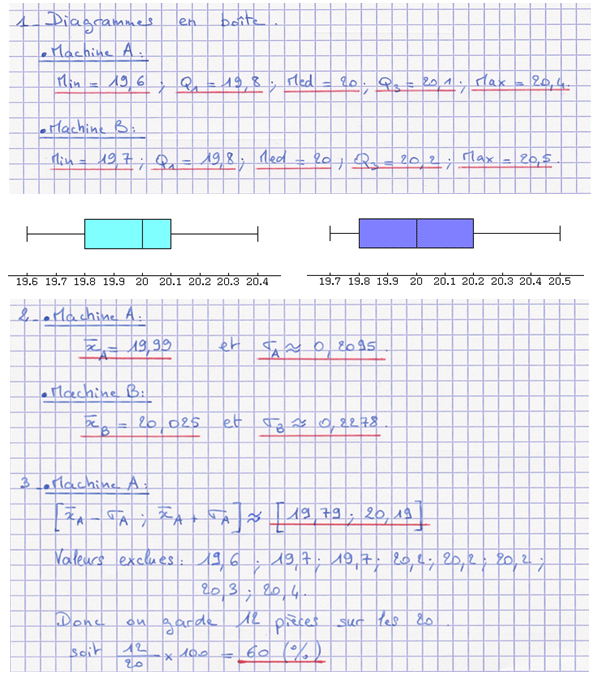 1_ Diagrammes en boîte.
• Machine A:
Min = 19,6 ; Q₁ = 19,8 ; Med = 20 ; Q₃ = 20,1 ; Max = 20,4.
• Machine B:
Min = 19,7 ; Q₁ = 19,8 ; Med = 20 ; Q₃ = 20,2 ; Max = 20,5.
19.6 19.7 19.8 19.9 20 20.1 20.2 20.3 20.4
19.7 19.8 19.9 20 20.1 20.2 20.3 20.4 20.5
2_ • Machine A:
x̄_A = 19,99 et σ_A ≈ 0,2095.
• Machine B:
x̄_B = 20,025 et σ_B ≈ 0,2278.
3_ • Machine A:
[x̄_A − σ_A ; x̄_A + σ_A] ≈ [19,79 ; 20,19]
Valeurs exclues : 19,6 ; 19,7 ; 19,7 ; 20,2 ; 20,2 ; 20,2 ;
20,3 ; 20,4.
Donc on garde 12 pièces sur les 20.
soit 12/20 × 100 = 60 (%)